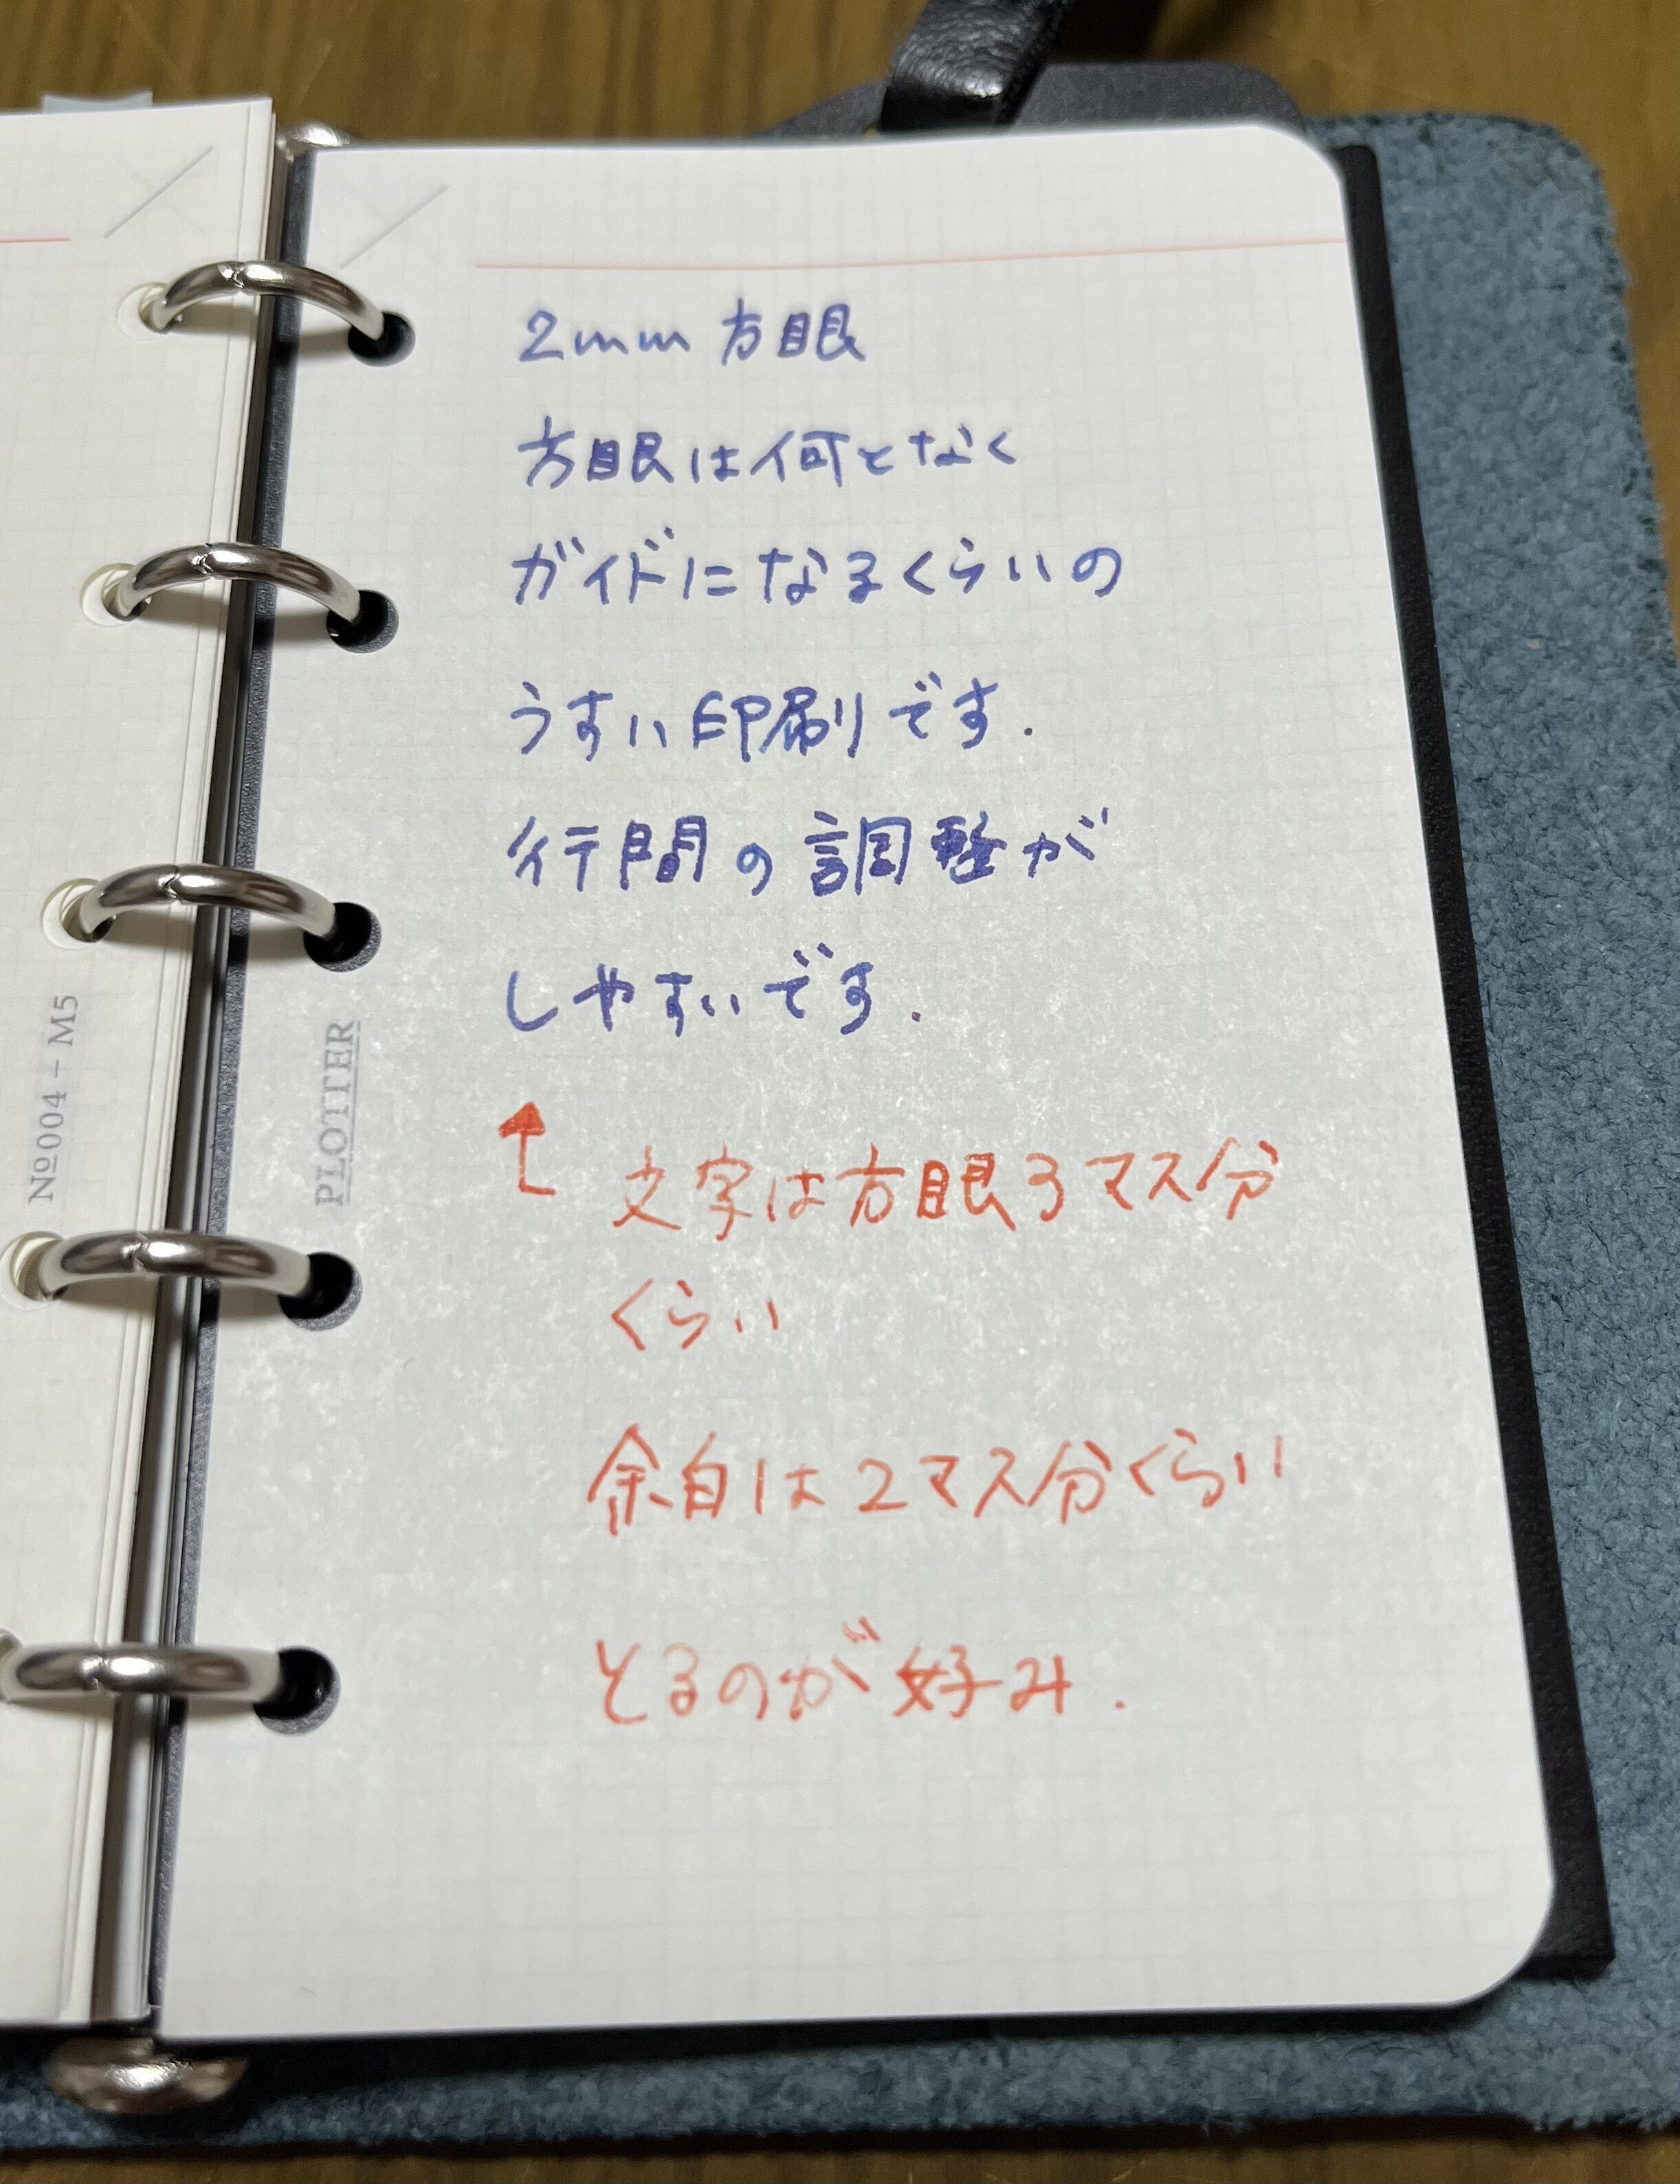 2mm 方眼
方眼は何となく
ガイドになるくらいの
うすい印刷です.
行間の調整が
しやすいです.
文字は方眼3マス分
くらい
余白は2マス分くらい
とるのが好み.
№004 - M5
PLOTTER